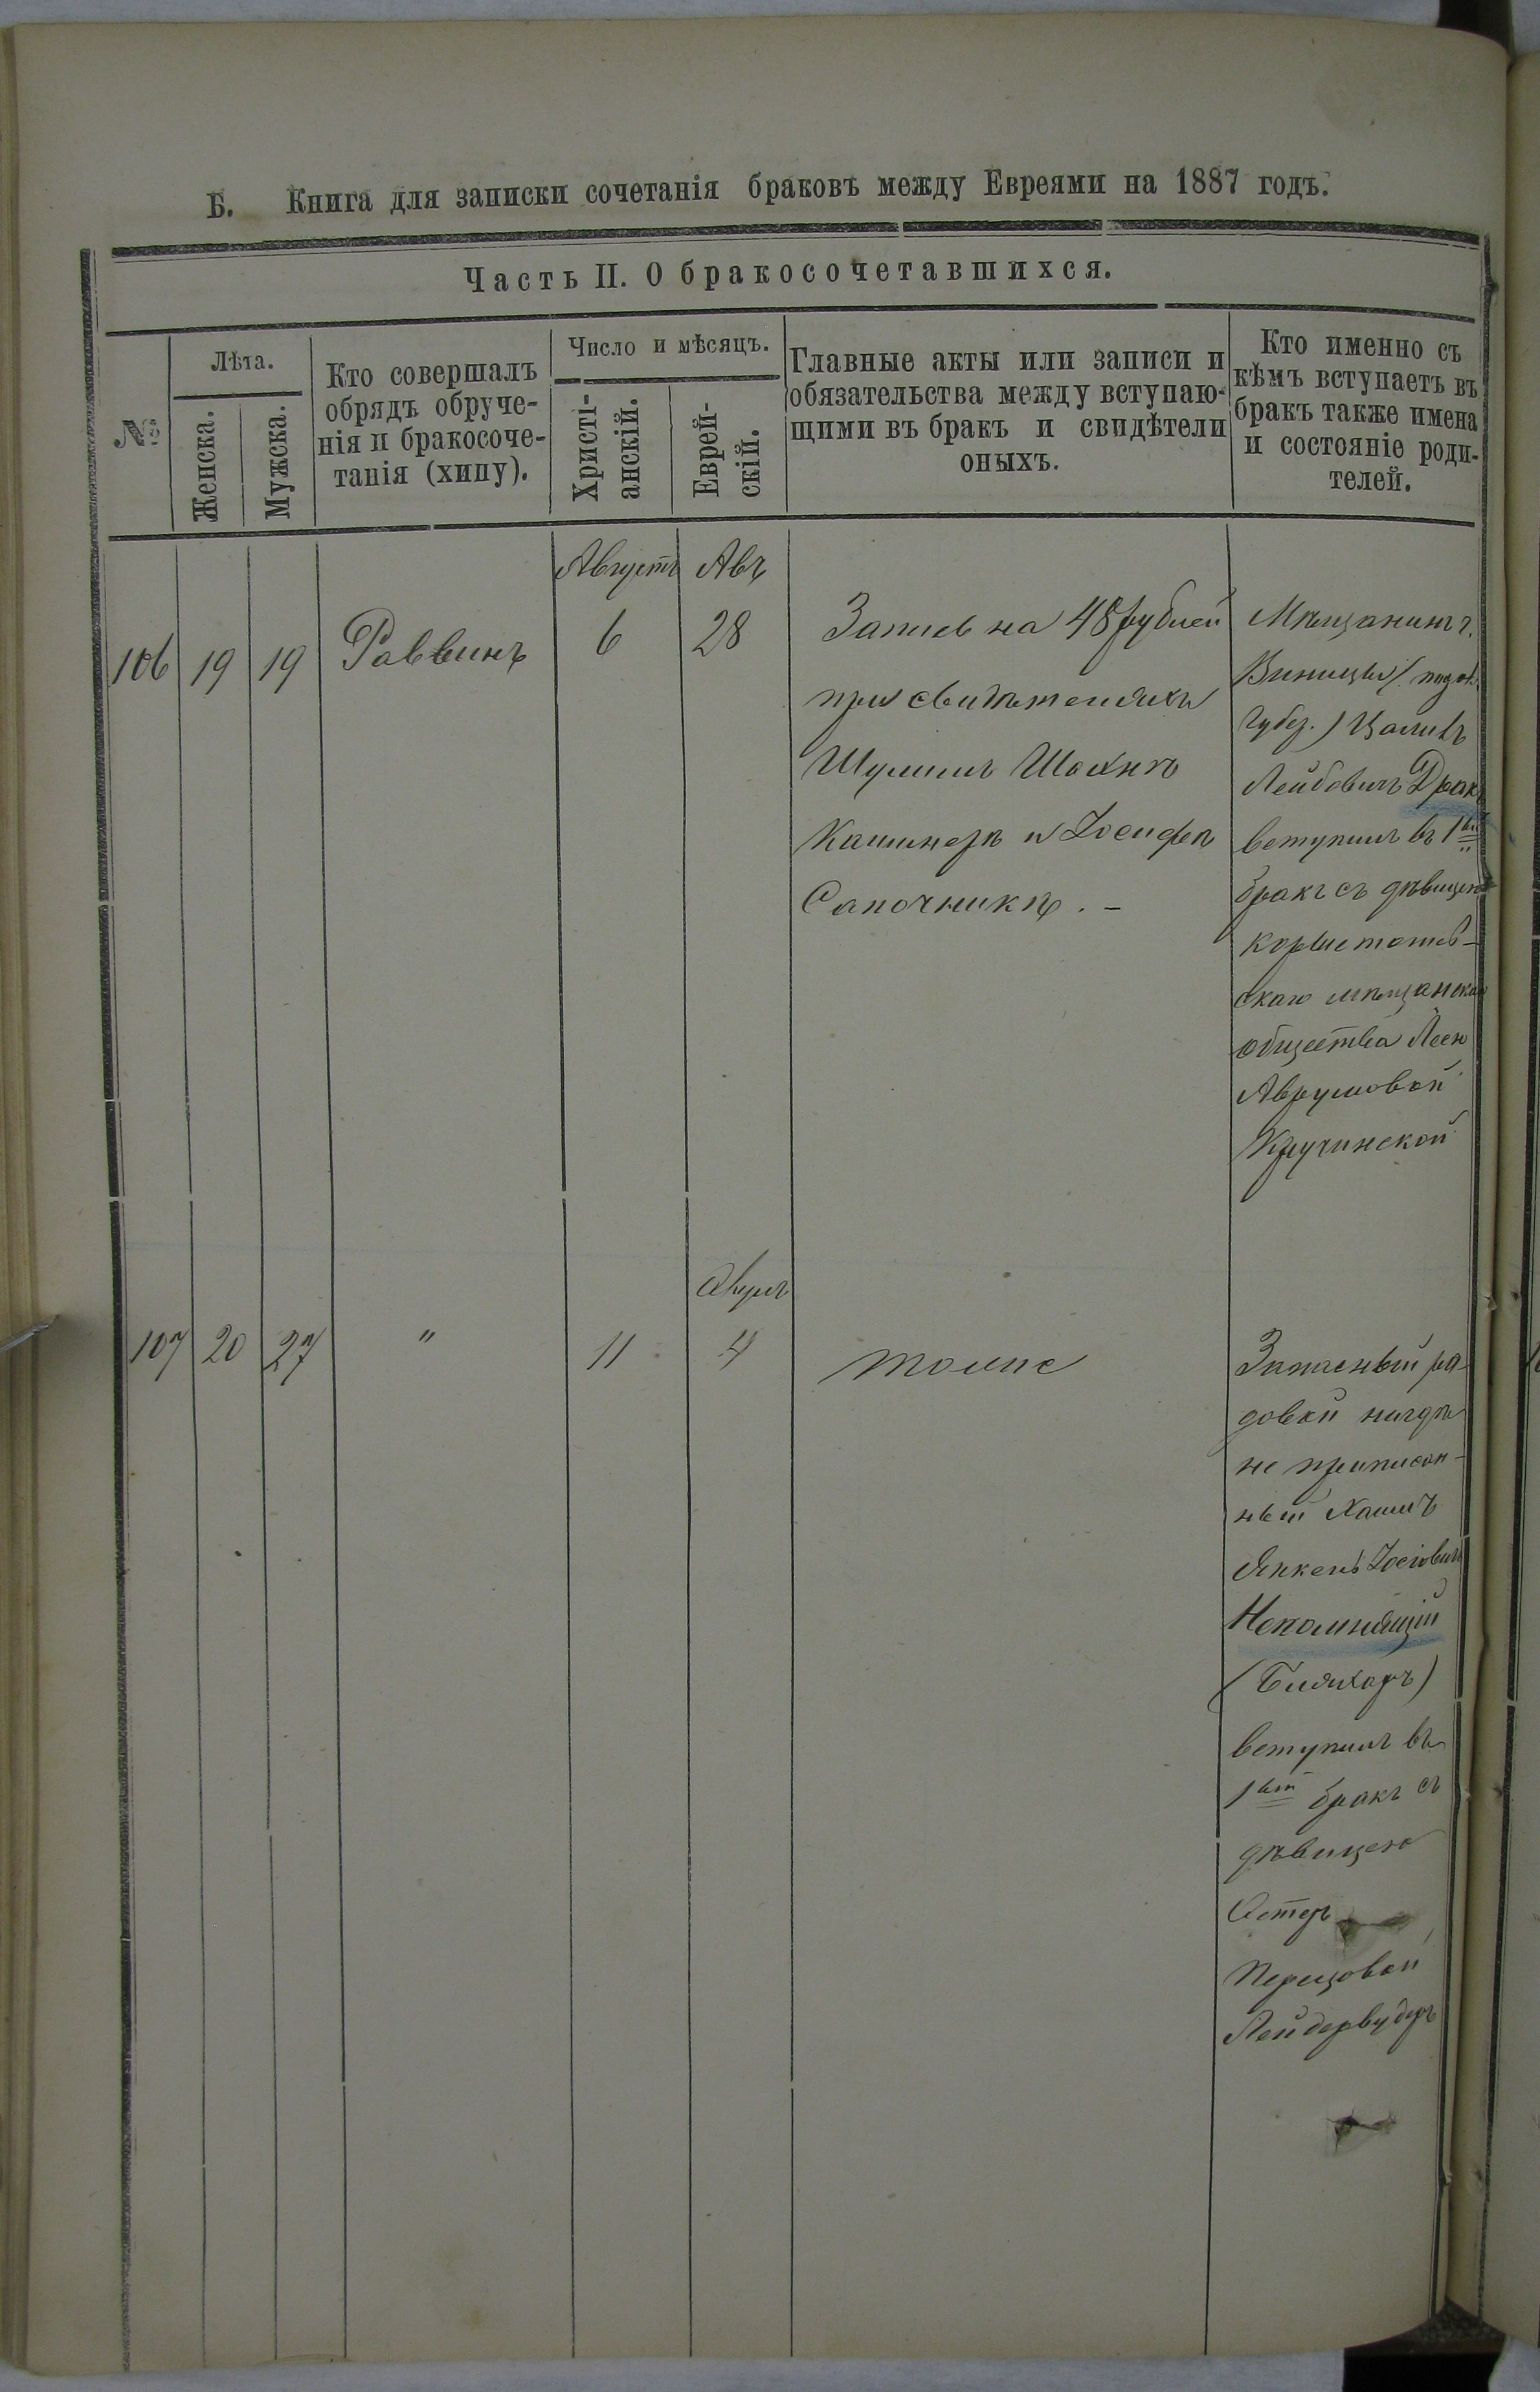 Б. Книга для записки сочетанія браковъ между Евреями на 1887 годъ.
Часть II. О бракосочетавшихся.
№
Лѣта.
Женска.
Мужска.
Кто совершалъ
обрядъ обруче-
нія и бракосоче-
танія (хипу).
Число и мѣсяцъ.
Христі-
анскій.
Еврей-
скій.
Главные акты или записи и
обязательства между вступаю-
щими въ бракъ и свидѣтели
оныхъ.
Кто именно съ
кѣмъ вступаетъ въ
бракъ также имена
и состояніе роди-
телей.
106
19
19
Раввинъ
Августъ
6
Авъ
28
Запись на 48 рублей
при свидѣтеляхъ
Шулимъ Шахнѣ
Кашнерѣ и Іосифѣ
Сапочникѣ. -
Мѣщанинъ г.
Винницы (подол.
губер.)
Лейбовичъ Драк
вступилъ въ 1ый
бракъ съ дѣвицею
Корыстошев-
скаго мѣщанскаго
общества Леею
Аврумовой
Кручинской
107
20
27
"
11
Авулъ
4
тоже
Запасный ря-
довой нигдѣ
не приписан-
ный Хаимъ
Янкель Іосіовичъ
Непомнящій
(Билихаръ)
вступилъ въ
1ый бракъ съ
дѣвицею
Эстеръ
Перецовой
Лейдервудеръ